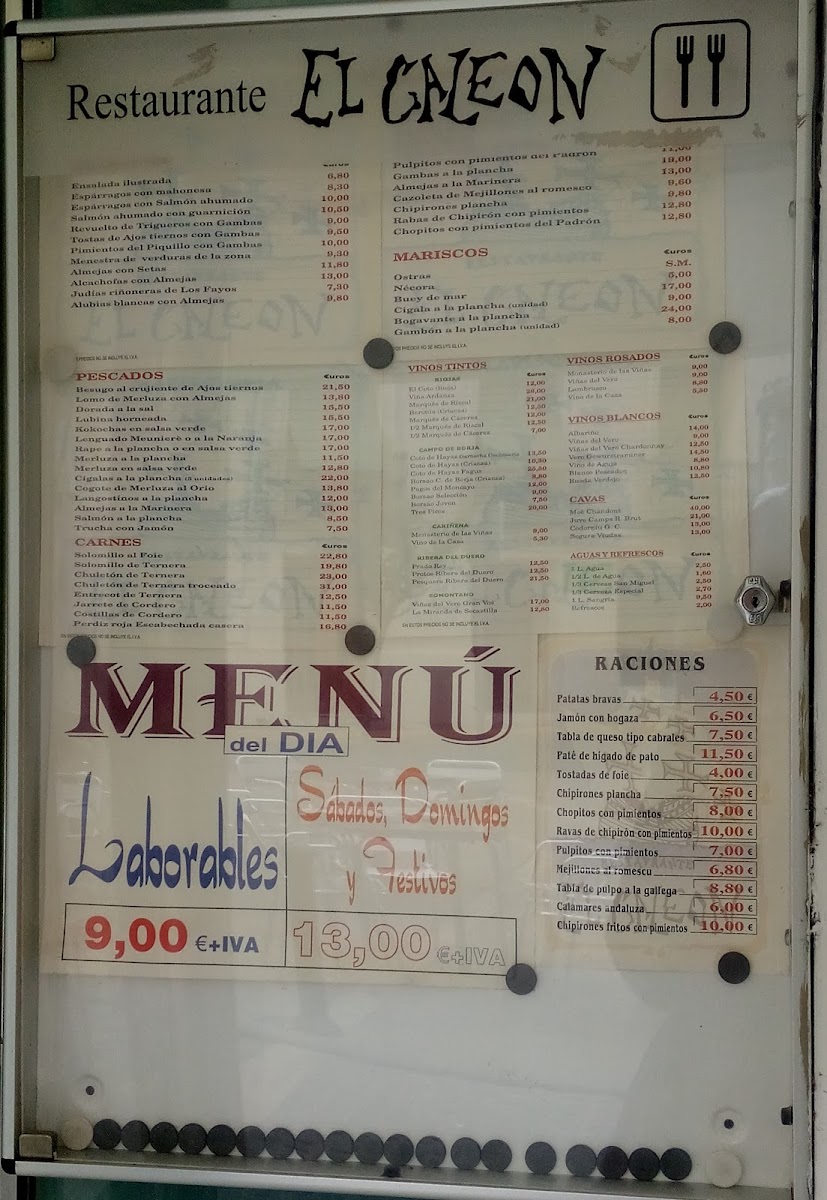 Restaurante EL GALEON
Euros
Ensalada ilustrada 6,80
Espárragos con mahonesa 8,30
Espárragos con Salmón ahumado 10,00
Salmón ahumado con guarnición 10,50
Revuelto de Trigueros con Gambas 9,00
Tostas de Ajos tiernos con Gambas 9,50
Pimientos del Piquillo con Gambas 10,00
Menestra de verduras de la zona 9,30
Almejas con Setas 11,80
Alcachofas con Almejas 13,00
Judías riñoneras de Los Fayos 7,30
Alubias blancas con Almejas 9,80
PRECIOS NO SE INCLUYE EL I.V.A.
Pulpitos con pimientos del Padrón 11,00
Gambas a la plancha 19,00
Almejas a la Marinera 13,00
Cazoleta de Mejillones al romesco 9,60
Chipirones plancha 9,80
Rabas de Chipirón con pimientos 12,80
Chopitos con pimientos del Padrón 12,80
MARISCOS Euros
Ostras S.M.
Nécora 5,00
Buey de mar 17,00
Cigala a la plancha (unidad) 9,00
Bogavante a la plancha 24,00
Gambón a la plancha (unidad) 8,00
PRECIOS NO SE INCLUYE EL I.V.A.
PESCADOS Euros
Besugo al crujiente de Ajos tiernos 21,50
Lomo de Merluza con Almejas 13,80
Dorada a la sal 15,50
Lubina horneada 15,50
Kokochas en salsa verde 17,00
Lenguado Meunière o a la Naranja 17,00
Rape a la plancha o en salsa verde 17,00
Merluza a la plancha 11,50
Merluza en salsa verde 12,80
Cigalas a la plancha (5 unidades) 22,00
Cogote de Merluza al Orio 13,80
Langostinos a la plancha 12,00
Almejas a la Marinera 13,00
Salmón a la plancha 8,50
Trucha con Jamón 7,50
CARNES Euros
Solomillo al Foie 22,80
Solomillo de Ternera 19,80
Chuletón de Ternera 23,00
Chuletón de Ternera troceado 31,00
Entrecot de Ternera 12,50
Jarrete de Cordero 11,50
Costillas de Cordero 11,50
Perdiz roja Escabechada casera 16,80
EN ESTOS PRECIOS NO SE INCLUYE EL I.V.A.
VINOS TINTOS Euros
RIOJAS
El Coto (Rioja) 12,00
Viña Ardanza 26,00
Marqués de Riscal 21,00
Beronia (Crianza) 12,50
Marqués de Cáceres 12,00
1/2 Marqués de Riscal 12,50
1/2 Marqués de Cáceres 7,00
CAMPO DE BORJA
Coto de Hayas Garnacha Centenaria 13,50
Coto de Hayas (Crianza) 10,30
Coto de Hayas Fagus 25,50
Borsao C. de Borja (Crianza) 9,80
Pagos del Moncayo 12,00
Borsao Selección 9,00
Borsao Joven 7,50
Tres Picos 20,00
CARIÑENA
Monasterio de las Viñas 9,00
Vino de la Casa 5,30
RIBERA DEL DUERO
Prado Rey 12,50
Protos Ribera del Duero 12,50
Pesquera Ribera del Duero 21,50
SOMONTANO
Viñas del Vero Gran Vos 17,00
La Miranda de Secastilla 12,80
EN ESTOS PRECIOS NO SE INCLUYE EL I.V.A.
VINOS ROSADOS Euros
Monasterio de las Viñas 9,00
Viñas del Vero 9,00
Lambrusco 8,80
Vino de la Casa 5,50
VINOS BLANCOS Euros
Albariño 14,00
Viñas del Vero 9,00
Viñas del Vero Chardonnay 12,50
Vero Gewurztraminer 14,50
Vino de Aguja 8,80
Blanco Pescador 10,80
Rueda Verdejo 12,50
CAVAS Euros
Moë Chandont 40,00
Juve Camps R. Brut 21,00
Codorniu G. C. 13,00
Segura Viudas 13,00
AGUAS Y REFRESCOS Euros
1 L. Agua 2,50
1/2 L. de Agua 1,60
1/3 Cerveza San Miguel 2,50
1/3 Cerveza Especial 2,70
1 L. Sangría 9,50
Refrescos 2,00
MENÚ
del DIA
Laborables
9,00 €+IVA
Sábados, Domingos
y Festivos
13,00 €+IVA
RACIONES
Patatas bravas 4,50 €
Jamón con hogaza 6,50 €
Tabla de queso tipo cabrales 7,50 €
Paté de hígado de pato 11,50 €
Tostadas de foie 4,00 €
Chipirones plancha 7,50 €
Chopitos con pimientos 8,00 €
Ravas de chipirón con pimientos 10,00 €
Pulpitos con pimientos 7,00 €
Mejillones al romescu 6,80 €
Tabla de pulpo a la gallega 8,80 €
Calamares andaluza 6,00 €
Chipirones fritos con pimientos 10,00 €